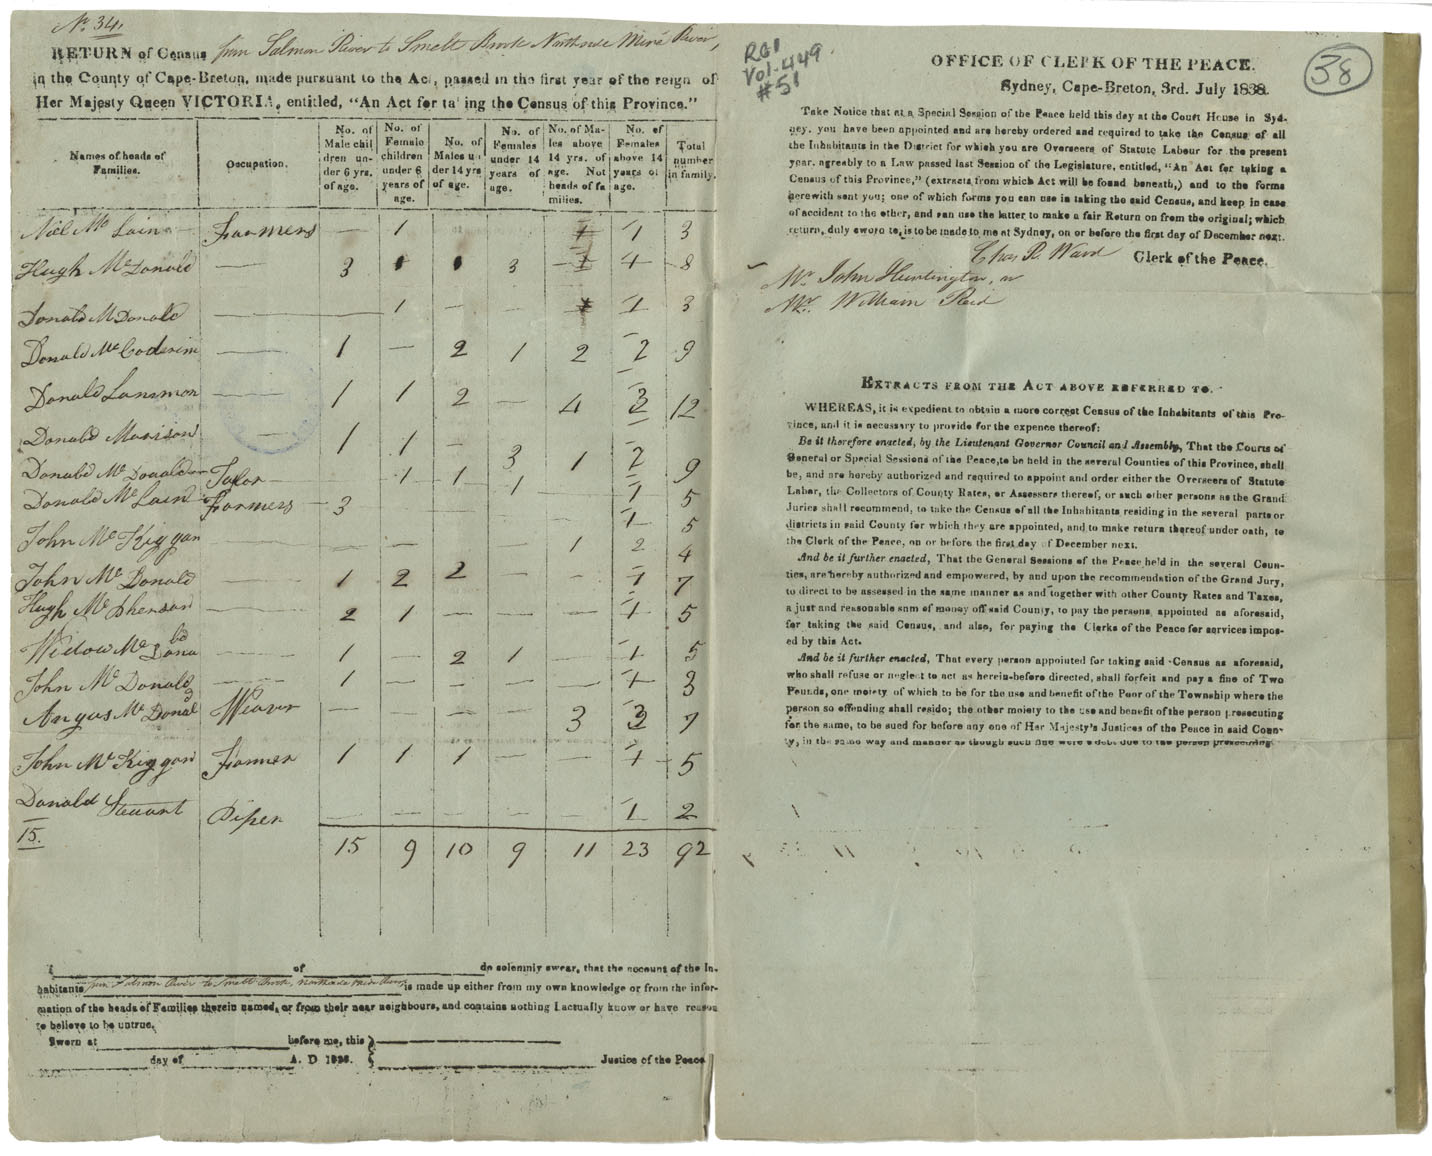 No. 34,
RETURN of Census from Salmon River to Smelt Brook Northside Miré River,
in the County of Cape-Breton, made pursuant to the Act, passed in the first year of the reign of
Her Majesty Queen VICTORIA, entitled, "An Act for ta ing the Census of this Province."
Names of heads of Families. Occupation. No. of Male chil dren un- der 6 yrs. of age. No. of Female children under 6 years of age. No. of Males un der 14 yrs of age. No. of Females under 14 years of age. No. of Ma- les above 14 yrs. of age. Not heads of fa milies. No. of Females above 14 years of age. Total number in family.
Niel Mc Lain Farmers — 1 — 1 1 3
Hugh Mc Donald — 3 1 1 3 — 1 4 8
Donald McDonald — 1 — — 1 3
Donald Mc — 1 — 2 1 2 2 9
Donald — 1 1 2 — 4 3 12
Donald Morison — 1 1 — 3 1 2 9
Donald Mc Donald Talor — 1 1 1 1 5
Donald Mc Lain Farmers — 3 1 5
John Mc Kiggan — — — — 1 2 4
John Mc Donald — 1 2 2 — — 1 7
Hugh Mc Pherson — 2 1 — — — 1 5
Widow Mc Dona ld — 1 — 2 1 — 1 5
John Mc Donald — 1 — — — — 1 3
Angus Mc Donald Weaver — — — — 3 3 7
John Mc Kiggan Farmer 1 1 1 — — 1 5
Donald Stewart Piper — — — — — 1 2
15. 15 9 10 9 11 23 92
I of do solemnly swear, that the account of the In-
habitants from Salmon River to Smelt Brook, northside Miré River is made up either from my own knowledge or from the infor-
mation of the heads of Families therein named, or from their near neighbours, and contains nothing I actually know or have reason
to believe to be untrue.
Sworn at before me, this }
day of A. D 1838. { Justice of the Peace
RG1
Vol-449
#51
38
OFFICE OF CLERK OF THE PEACE.
Sydney, Cape-Breton, 3rd. July 1838.
Take Notice that at a Special Session of the Peace held this day at the Court House in Syd-
ney. you have been appointed and are hereby ordered and required to take the Census of all
the Inhabitants in the District for which you are Overseers of Statute Labour for the present
year. agreably to a Law passed last Session of the Legislature, entitled, "An Act for taking a
Census of this Province," (extracts from which Act will be found beneath,) and to the forms
herewith sent you; one of which forms you can use in taking the said Census, and keep in case
of accident to the other, and can use the latter to make a fair Return on from the original; which
return, duly sworn to, is to be made to me at Sydney, on or before the first day of December next.
Chas R. Ward Clerk of the Peace.
Mr. John Huntington,
Mr. William Reid
EXTRACTS FROM THE ACT ABOVE REFERRED TO.
WHEREAS, it is expedient to obtain a more correct Census of the Inhabitants of this Pro-
vince, and it is necessary to provide for the expence thereof:
Be it therefore enacted, by the Lieutenant Governor Council and Assembly, That the Courts of
General or Special Sessions of the Peace, to be held in the several Counties of this Province, shall
be, and are hereby authorized and required to appoint and order either the Overseers of Statute
Labor, the Collectors of County Rates, or Assessors thereof, or such other persons as the Grand
Juries shall recommend, to take the Census of all the Inhabitants residing in the several parts or
districts in said County for which they are appointed, and to make return thereof under oath, to
the Clerk of the Peace, on or before the first day of December next.
And be it further enacted, That the General Sessions of the Peace held in the several Coun-
ties, are hereby authorized and empowered, by and upon the recommendation of the Grand Jury,
to direct to be assessed in the same manner as and together with other County Rates and Taxes,
a just and reasonable sum of money off said County, to pay the persons, appointed as aforesaid,
for taking the said Census, and also, for paying the Clerks of the Peace for services impos-
ed by this Act.
And be it further enacted, That every person appointed for taking said Census as aforesaid,
who shall refuse or neglect to act as herein-before directed, shall forfeit and pay a fine of Two
Pounds, one moiety of which to be for the use and benefit of the Poor of the Township where the
person so offending shall reside; the other moiety to the use and benefit of the person prosecuting
for the same, to be sued for before any one of Her Majesty's Justices of the Peace in said Coun-
ty, in the same way and manner as though such fine were a debt due to the person prosecuting.